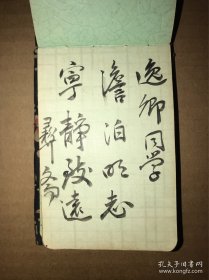 逸卿同学
澹泊明志
宁静致远
孔夫子旧书网